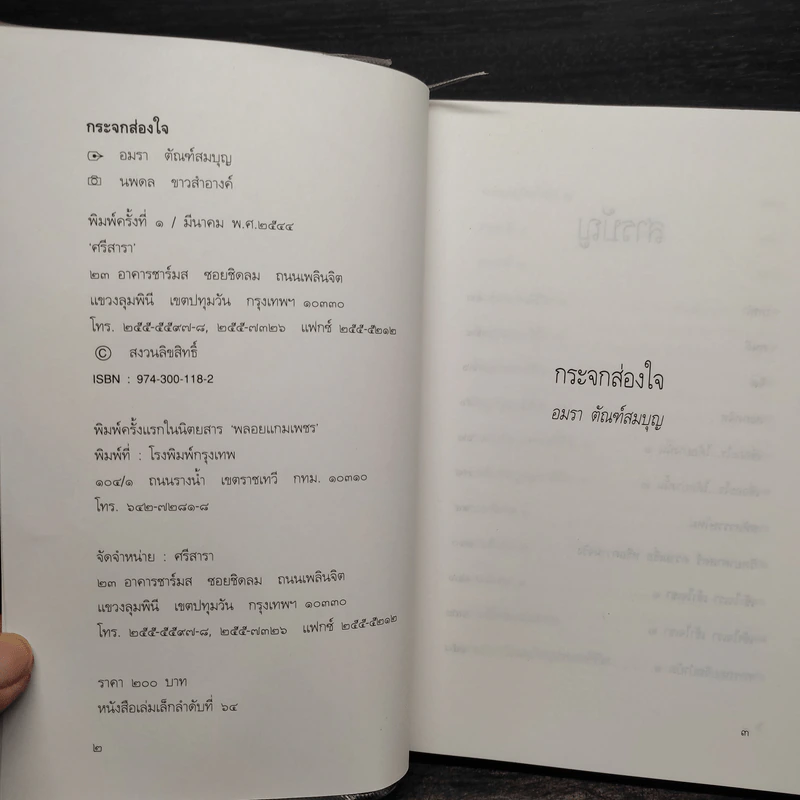 กระจกส่องใจ
อมรา ตัณฑ์สมบุญ
นพดล ขาวสำอางค์
พิมพ์ครั้งที่ ๑ / มีนาคม พ.ศ.๒๕๔๔
'ศรีสารา'
๒๓ อาคารชาร์มส ซอยชิดลม ถนนเพลินจิต
แขวงลุมพินี เขตปทุมวัน กรุงเทพฯ ๑๐๓๓๐
โทร. ๒๕๕-๕๕๙๗-๘, ๒๕๕-๗๓๒๖ แฟกซ์ ๒๕๕-๕๒๑๒
© สงวนลิขสิทธิ์
ISBN : 974-300-118-2
พิมพ์ครั้งแรกในนิตยสาร 'พลอยแกมเพชร'
พิมพ์ที่ : โรงพิมพ์กรุงเทพ
๑๐๔/๑ ถนนรางน้ำ เขตราชเทวี กทม. ๑๐๓๑๐
โทร. ๖๔๒-๗๒๘๑-๘
จัดจำหน่าย : ศรีสารา
๒๓ อาคารชาร์มส ซอยชิดลม ถนนเพลินจิต
แขวงลุมพินี เขตปทุมวัน กรุงเทพฯ ๑๐๓๓๐
โทร. ๒๕๕-๕๕๙๗-๘, ๒๕๕-๗๓๒๖ แฟกซ์ ๒๕๕-๕๒๑๒
ราคา ๒๐๐ บาท
หนังสือเล่มเล็กลำดับที่ ๖๔
๒
กระจกส่องใจ
อมรา ตัณฑ์สมบุญ
๓